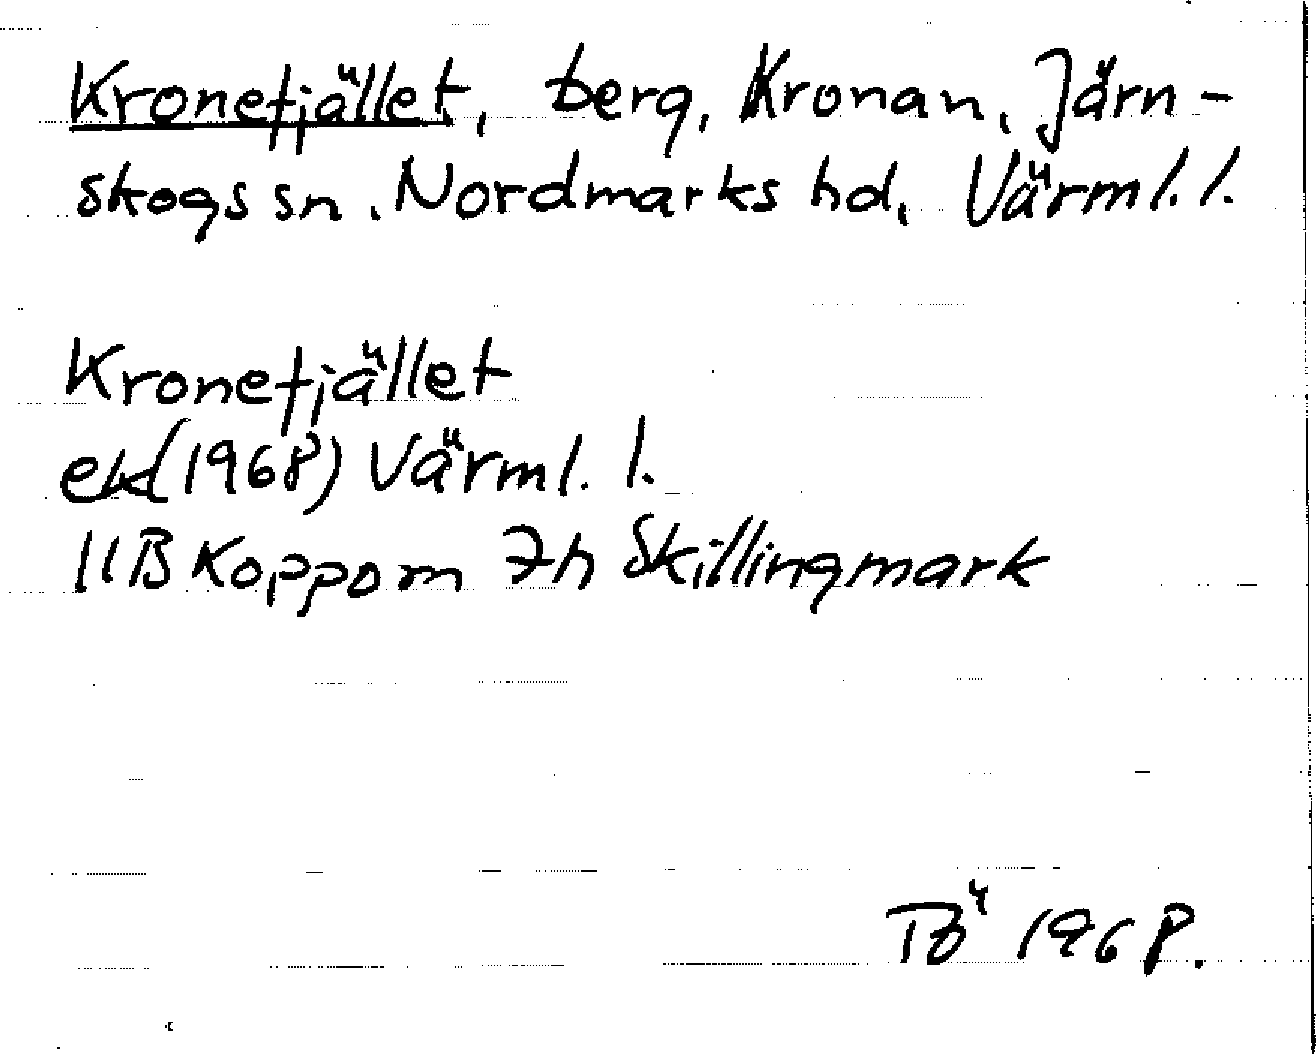 Kronefjället, berg, Kronan, Järn-
skogs sn. Nordmarks hd, Värml. l.
Kronefjället
ek (1968) Värml. l.
11B Koppom 7h Skillingmark
Bä 1968.